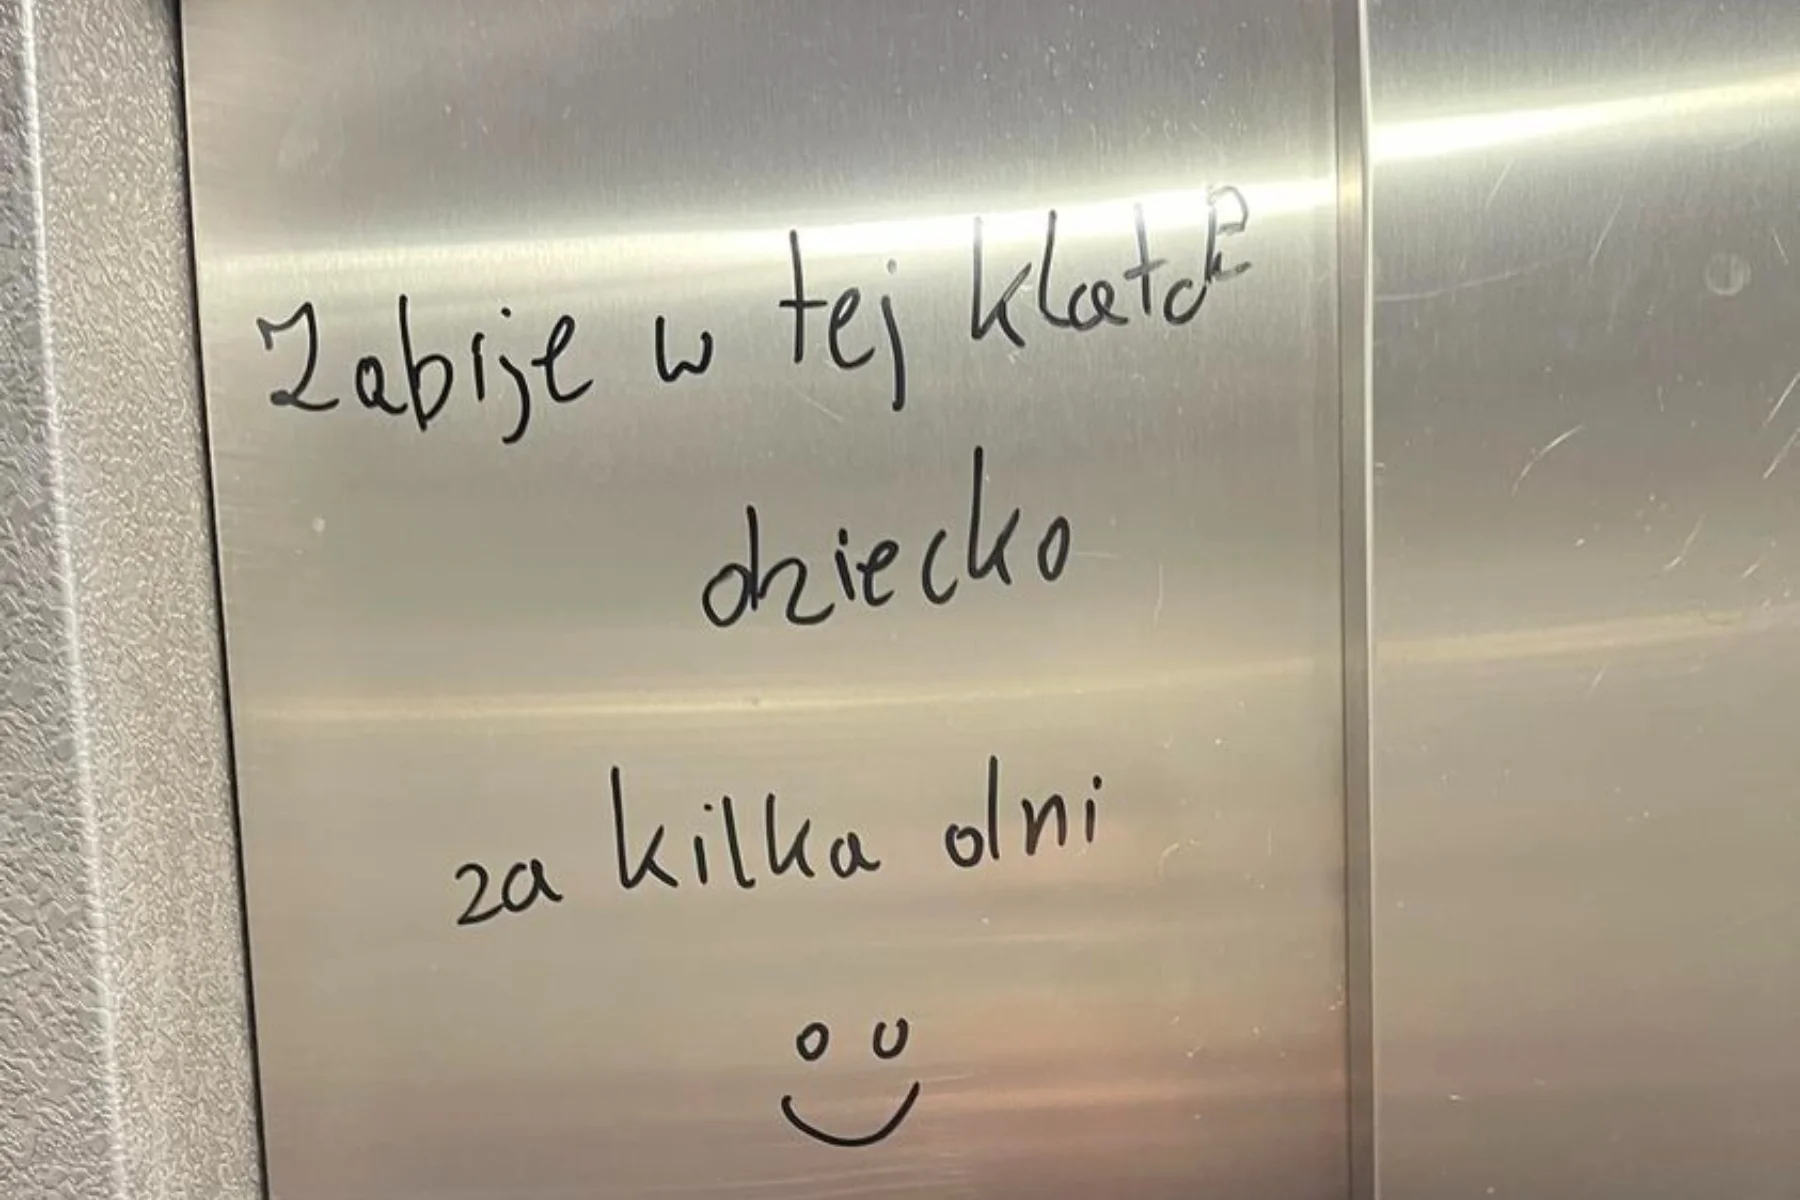 Zabije w tej klatce
dziecko
za kilka dni